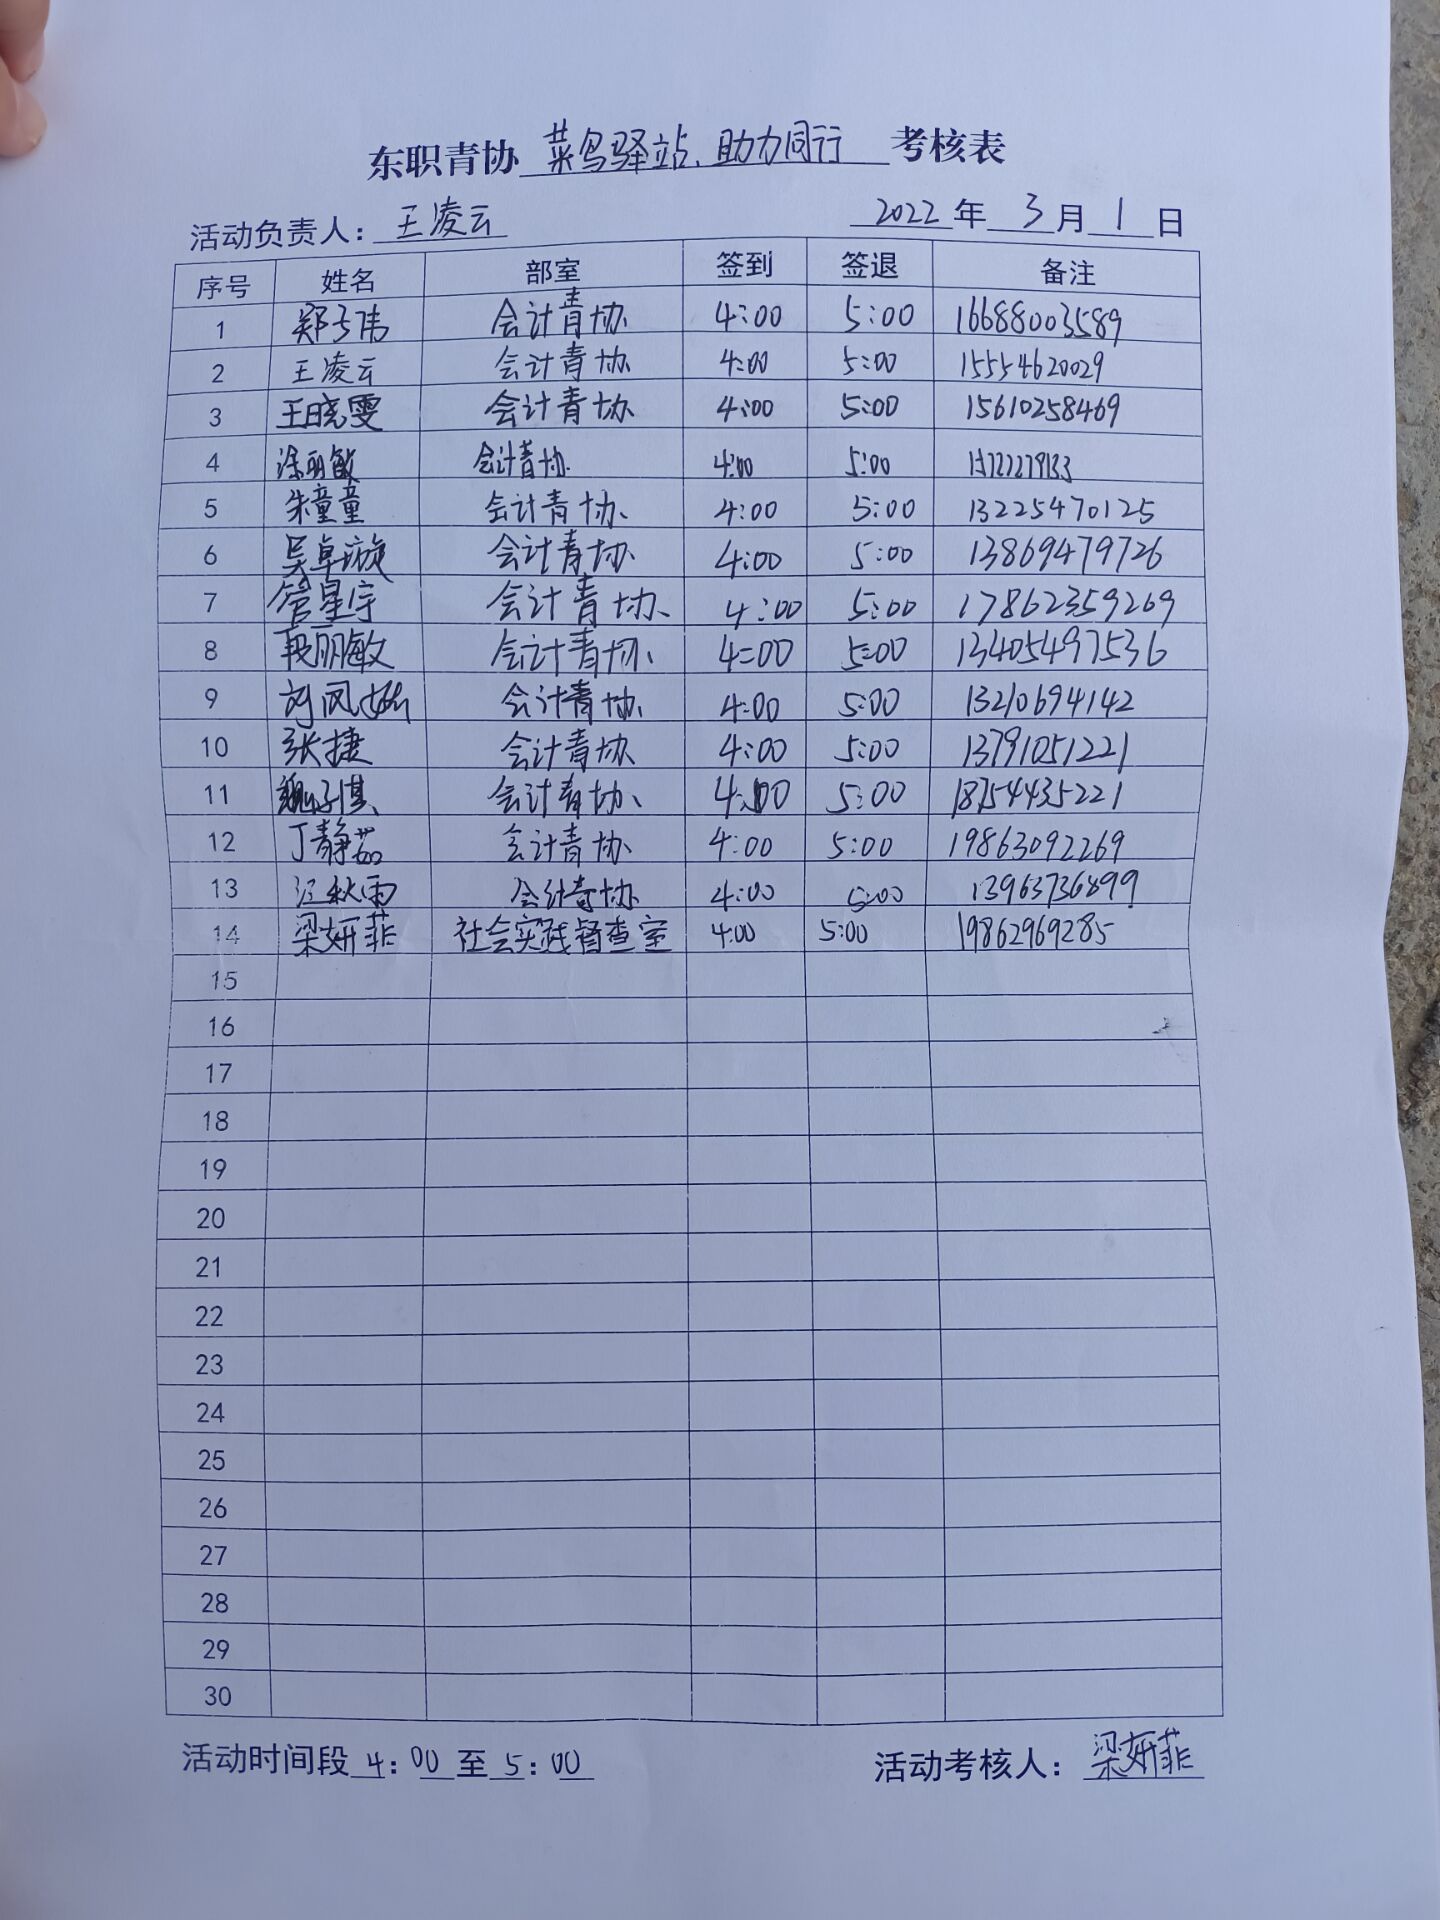 东职青协 菜鸟驿站、助力同行 考核表
活动负责人：王凌云 2022年3月1日
序号 姓名 部室 签到 签退 备注
1 郑子伟 会计青协 4:00 5:00 16688003589
2 王凌云 会计青协 4:00 5:00 15554620029
3 王晓雯 会计青协 4:00 5:00 15610258469
4 涂丽敏 会计青协 4:00 5:00
5 朱童童 会计青协 4:00 5:00 13225470125
6 吴卓璇 会计青协 4:00 5:00 13869479726
7 管星宇 会计青协 4:00 5:00 17862359269
8 段丽敏 会计青协 4:00 5:00 13405497536
9 刘凤 会计青协 4:00 5:00 13210694142
10 张捷 会计青协 4:00 5:00 13791051221
11 魏子淇 会计青协 4:00 5:00 18754435221
12 丁静茹 会计青协 4:00 5:00 19863092269
13 江秋雨 会计青协 4:00 5:00 13963736899
14 梁妍菲 社会实践督查室 4:00 5:00 19862969285
15
16
17
18
19
20
21
22
23
24
25
26
27
28
29
30
活动时间段4:00至5:00 活动考核人：梁妍菲